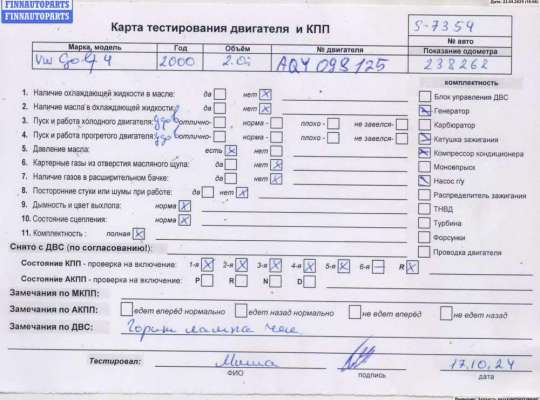 FINNAUTOPARTS
FINNAUTOPARTS
Карта тестирования двигателя и КПП
S-7354
№ авто
Марка, модель Год Объём № двигателя Показание одометра
VW Golf 4 2000 2.0i AQY 098125 238262
комплектность
1. Наличие охлаждающей жидкости в масле: да нет X
2. Наличие масла в охлаждающей жидкости: да нет X
3. Пуск и работа холодного двигателя: удов отлично- норма - плохо - не завелся-
4. Пуск и работа прогретого двигателя: удов отлично- норма - плохо - не завелся-
5. Давление масла: есть X нет
6. Картерные газы из отверстия масляного щупа: да нет X
7. Наличие газов в расширительном бачке: да нет X
8. Посторонние стуки или шумы при работе: да нет X
9. Дымность и цвет выхлопа: норма X
10. Состояние сцепления: норма X
11. Комплектность : полная X
Блок управления ДВС
X Генератор
Карбюратор
X Катушка зажигания
X Компрессор кондиционера
Моновпрыск
X Насос г/у
Распределитель зажигания
ТНВД
Турбина
Форсунки
Проводка двигателя
Снято с ДВС (по согласованию!):
Состояние КПП - проверка на включение: 1-я X 2-я X 3-я X 4-я X 5-я X 6-я — R X
Состояние АКПП - проверка на включение: P R N D
Замечания по МКПП:
Замечания по АКПП: едет вперёд нормально едет назад нормально не едет вперёд не едет назад
Замечания по ДВС: Горит лампа чек
Тестировал: Миша 17.10.24
ФИО подпись дата